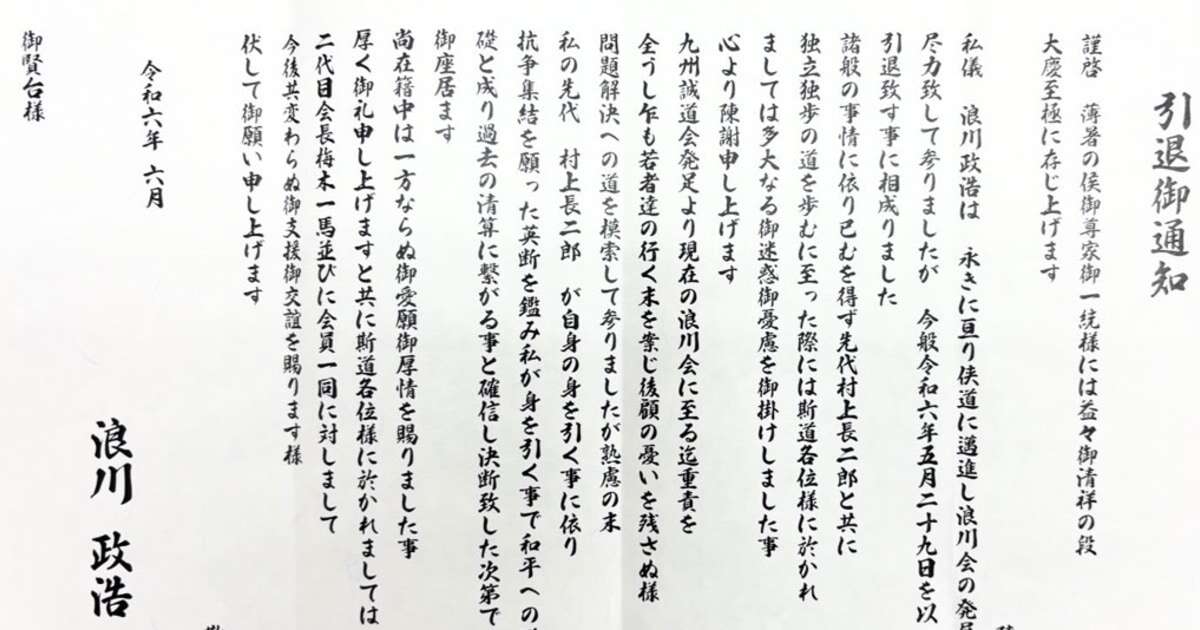 引退御通知
謹啓　薄暑の侯御尊家御一統様には益々御清祥の段
大慶至極に存じ上げます
私儀　浪川政浩は　永きに亘り侠道に邁進し浪川会の発展
尽力致して参りましたが　今般令和六年五月二十九日を以
引退致す事に相成りました
諸般の事情に依り已むを得ず先代村上長二郎と共に
独立独歩の道を歩むに至った際には斯道各位様に於かれ
ましては多大なる御迷惑御憂慮を御掛けしました事
心より陳謝申し上げます
九州誠道会発足より現在の浪川会に至る迄重責を
全うし乍も若者達の行く末を案じ後顧の憂いを残さぬ様
問題解決への道を模索して参りましたが熟慮の末
私の先代　村上長二郎　が自身の身を引く事に依り
抗争集結を願った英断を鑑み私が身を引く事で和平への
礎と成り過去の清算に繋がる事と確信し決断致した次第で
御座居ます
尚在籍中は一方ならぬ御愛願御厚情を賜りました事
厚く御礼申し上げますと共に斯道各位様に於かれましては
二代目会長梅木一馬並びに会員一同に対しまして
今後共変わらぬ御支援御交誼を賜ります様
伏して御願い申し上げます
令和六年　六月
浪川　政浩
御賢台様